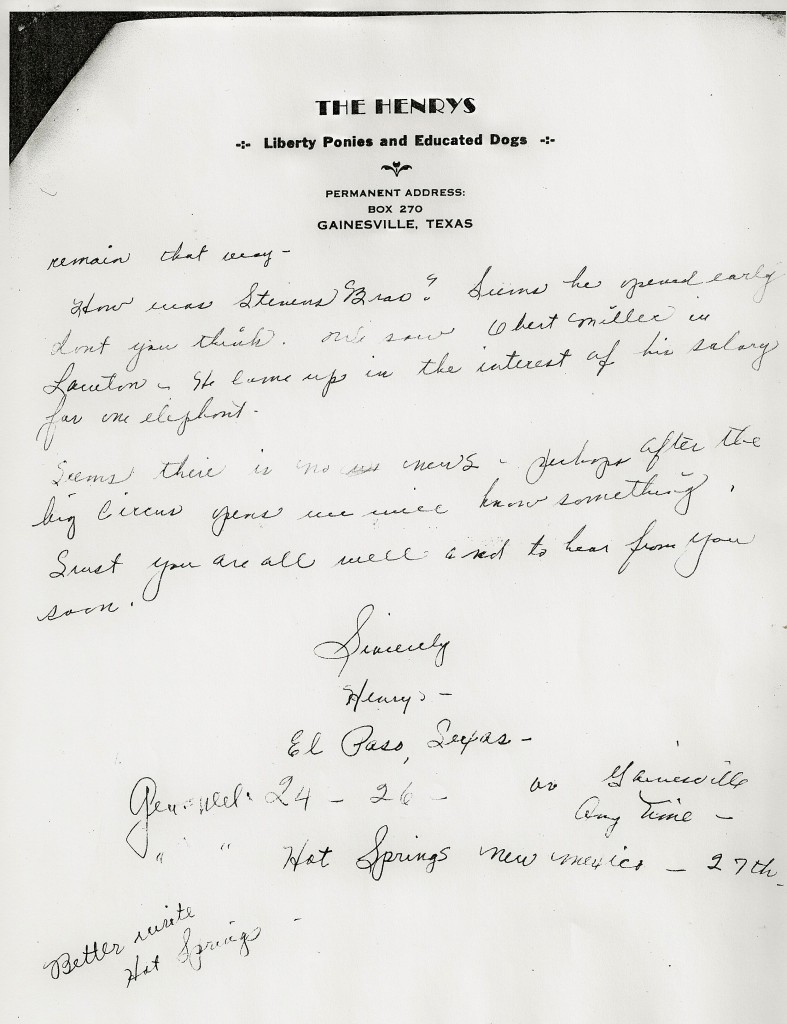 THE HENRYS
-:- Liberty Ponies and Educated Dogs -:-
PERMANENT ADDRESS:
BOX 270
GAINESVILLE, TEXAS
remain that way -
How was Stevens Bros? Seems he opened early
dont you think. We saw Obert Miller in
Lawton - He come up in the interest of his salary
for one elephant -
Seems there is no news - perhaps after the
big Circus opens we will know something.
Trust you are all well and to hear from you
soon.
Sincerely
Henrys -
El Paso, Texas -
Gen. Del. 24 - 26 - or Gainesville
Any Time -
" " Hot Springs New Mexico - 27th -
Better write
Hot Springs -